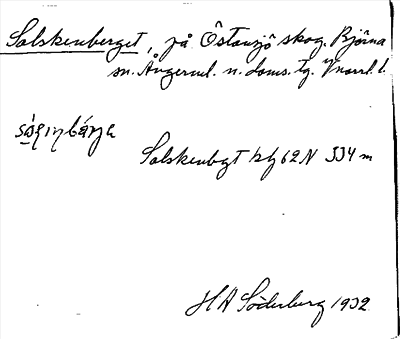 Solskensberget, på Östansjö skog. Björna
sn. Ångerml. n. doms. tg. Vnorrl. l.
Solskensbgt 62N 334 m
HA Söderberg 1932